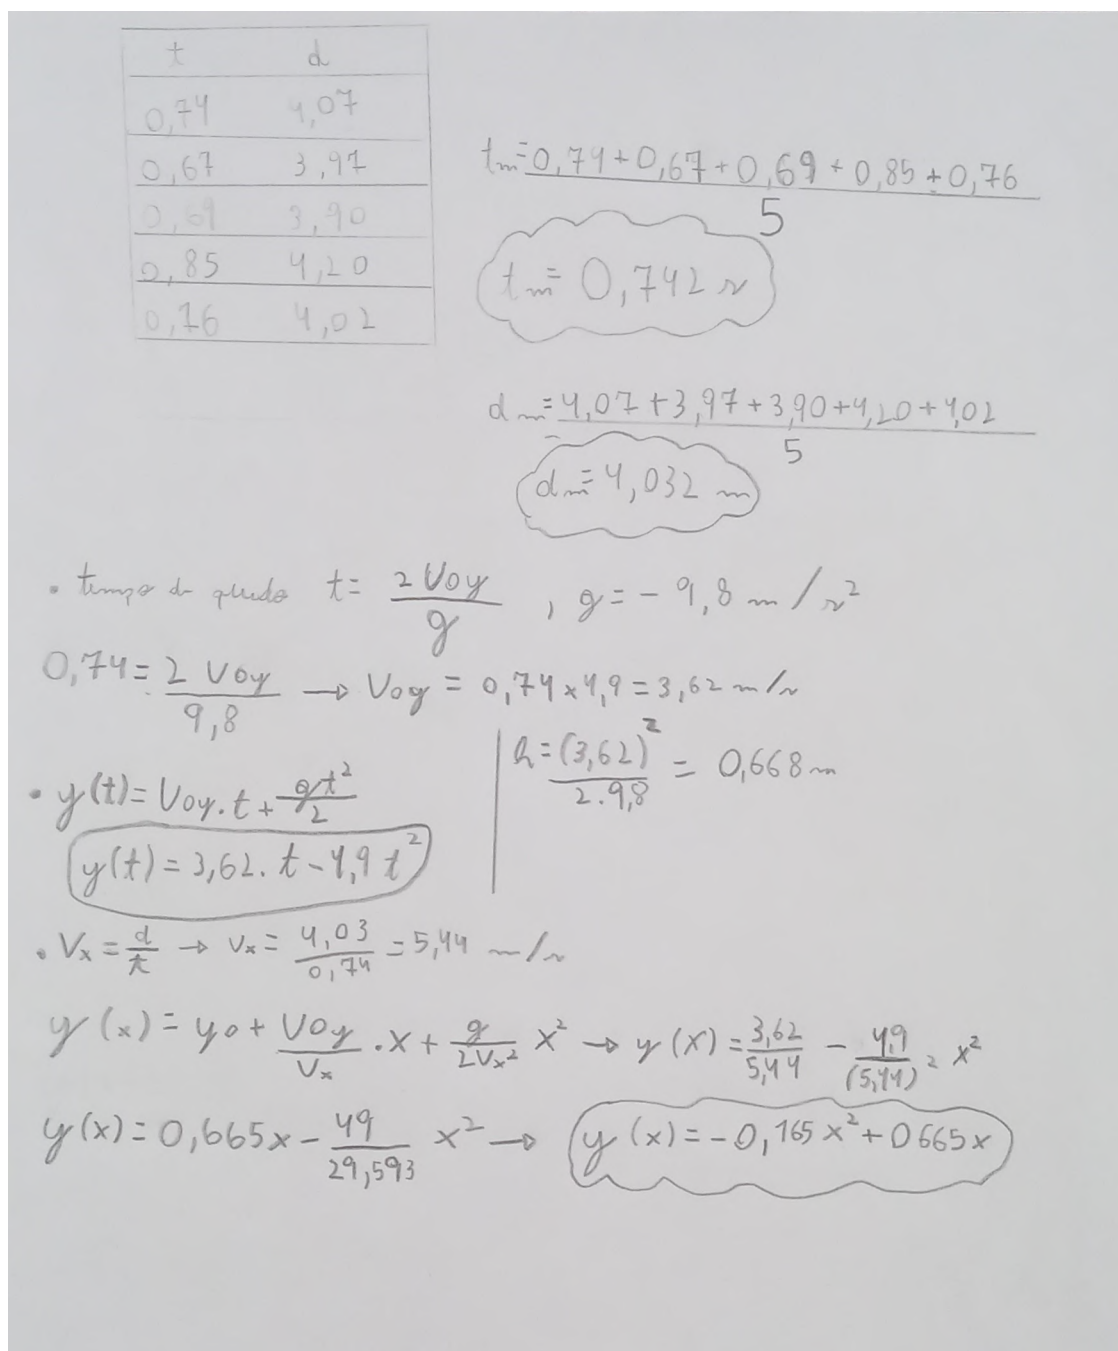 t d
0,74 4,07
0,67 3,97
0,69 3,90
0,85 4,20
0,76 4,02
tm = 0,74 + 0,67 + 0,69 + 0,85 + 0,76
5
tm = 0,742 s
dm = 4,07 + 3,97 + 3,90 + 4,20 + 4,02
5
dm = 4,032 m
• tempo de queda t = 2 Voy / g , g = - 9,8 m / s²
0,74 = 2 Voy / 9,8 → Voy = 0,74 x 4,9 = 3,62 m/s
h = (3,62)² / 2.9,8 = 0,668 m
• y(t) = Voy.t + gt² / 2
y(t) = 3,62. t - 4,9 t²
• Vx = d / t → Vx = 4,03 / 0,74 = 5,44 m/s
y(x) = yo + Voy / Vx . x + g / 2Vx² x² → y(x) = 3,62 / 5,44 - 4,9 / (5,44)² x²
y(x) = 0,665x - 49 / 29,593 x² → y(x) = -0,165x² + 0665x